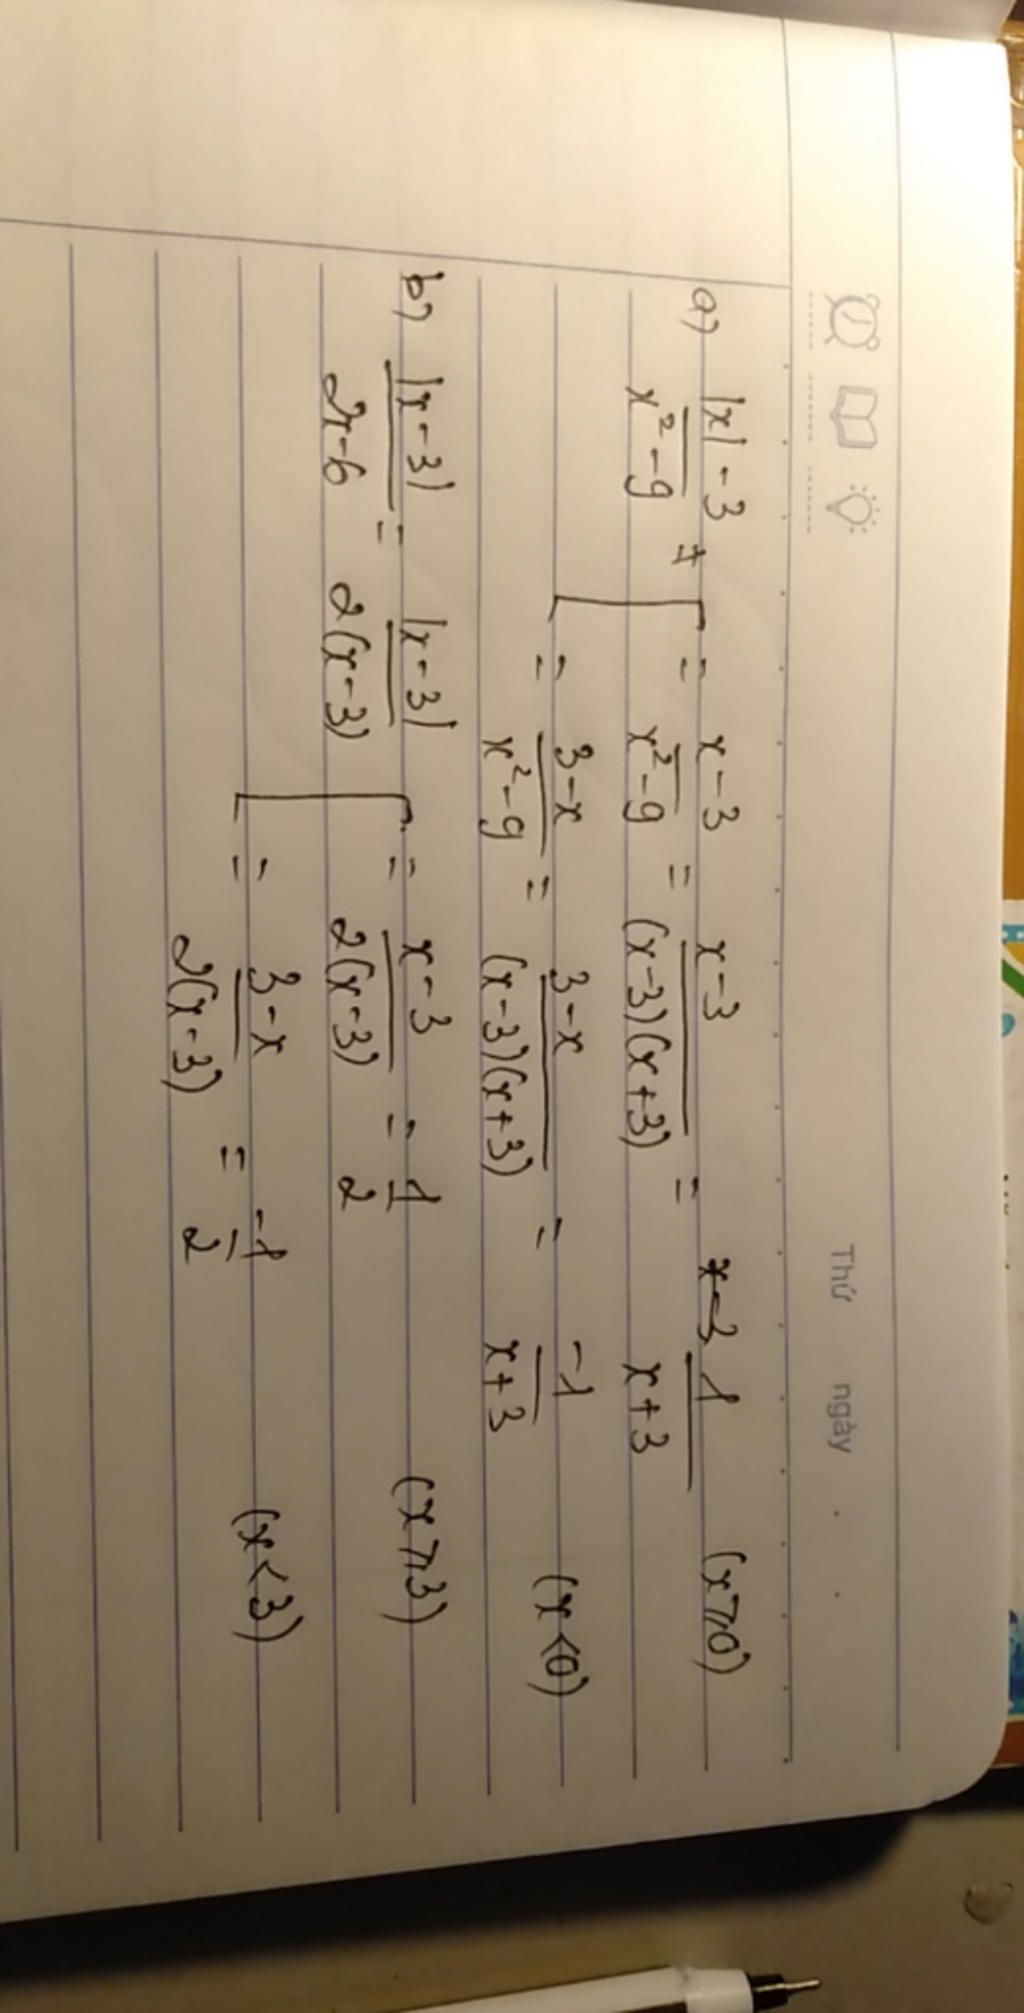 Thứ ngày . .
a) |x| - 3 / x² - 9 = x - 3 / x² - 9 = x - 3 / (x-3)(x+3) = 1 / x + 3 (x ⩾ 0)
= 3 - x / x² - 9 = 3 - x / (x-3)(x+3) = -1 / x + 3 (x < 0)
b) |x - 3| / 2x - 6 = |x - 3| / 2(x - 3) = x - 3 / 2(x - 3) = 1 / 2 (x ⩾ 3)
= 3 - x / 2(x - 3) = -1 / 2 (x < 3)